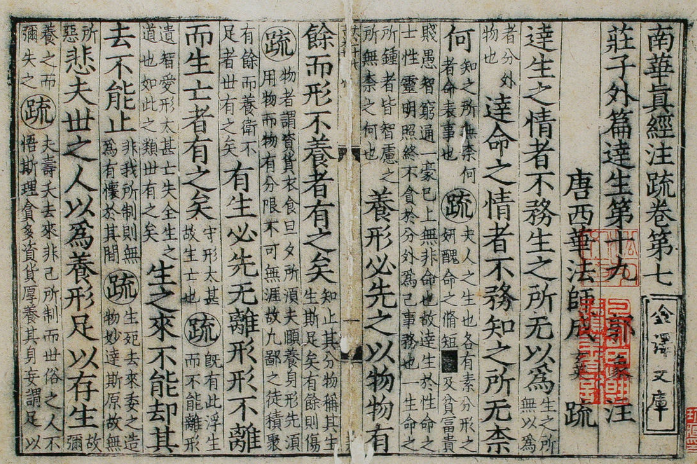 南華真經注疏卷第七
金澤文庫
莊子外篇達生第十九 郭象注
唐西華法師成玄英 疏
達生之情者不務生之所无以為
生之所無以為
者分外物也
達命之情者不務知之所无柰
何
知之所無柰何
者命表事也
疏
夫人之生也各有素分形之
妍醜命之脩短 及貧富貴
賤愚智窮通一豪已上無非命也故達生於性命之
士性靈明照終不貪於分外為己事務也一生命之
所鍾者皆智慮之
所無柰之何也
養形必先之以物物有
餘而形不養者有之矣
知止其分物稱其生
生斯足矣有餘則傷
疏
物者謂資貨衣食旦夕所須夫頤養身形先須
用物而物有分限不可無涯故凡鄙之徒積聚
有餘而養衛不
足者世有之矣
有生必先无離形形不離
而生亡者有之矣
守形太甚
故生亡也
疏
既有此浮生
而不能離形
遺智愛形太甚亡失全生之
道也如此之類世有之矣
生之來不能却其
去不能止
非我所制則無
為有懷於其間
疏
生死去來委之造
物妙達斯原故無
所
惡
悲夫世之人以為養形足以存生
故彌
養之而
彌失之
疏
夫壽夭去來非己所制而世俗之人不
悟斯理貪多資貨厚養其身妄謂足以